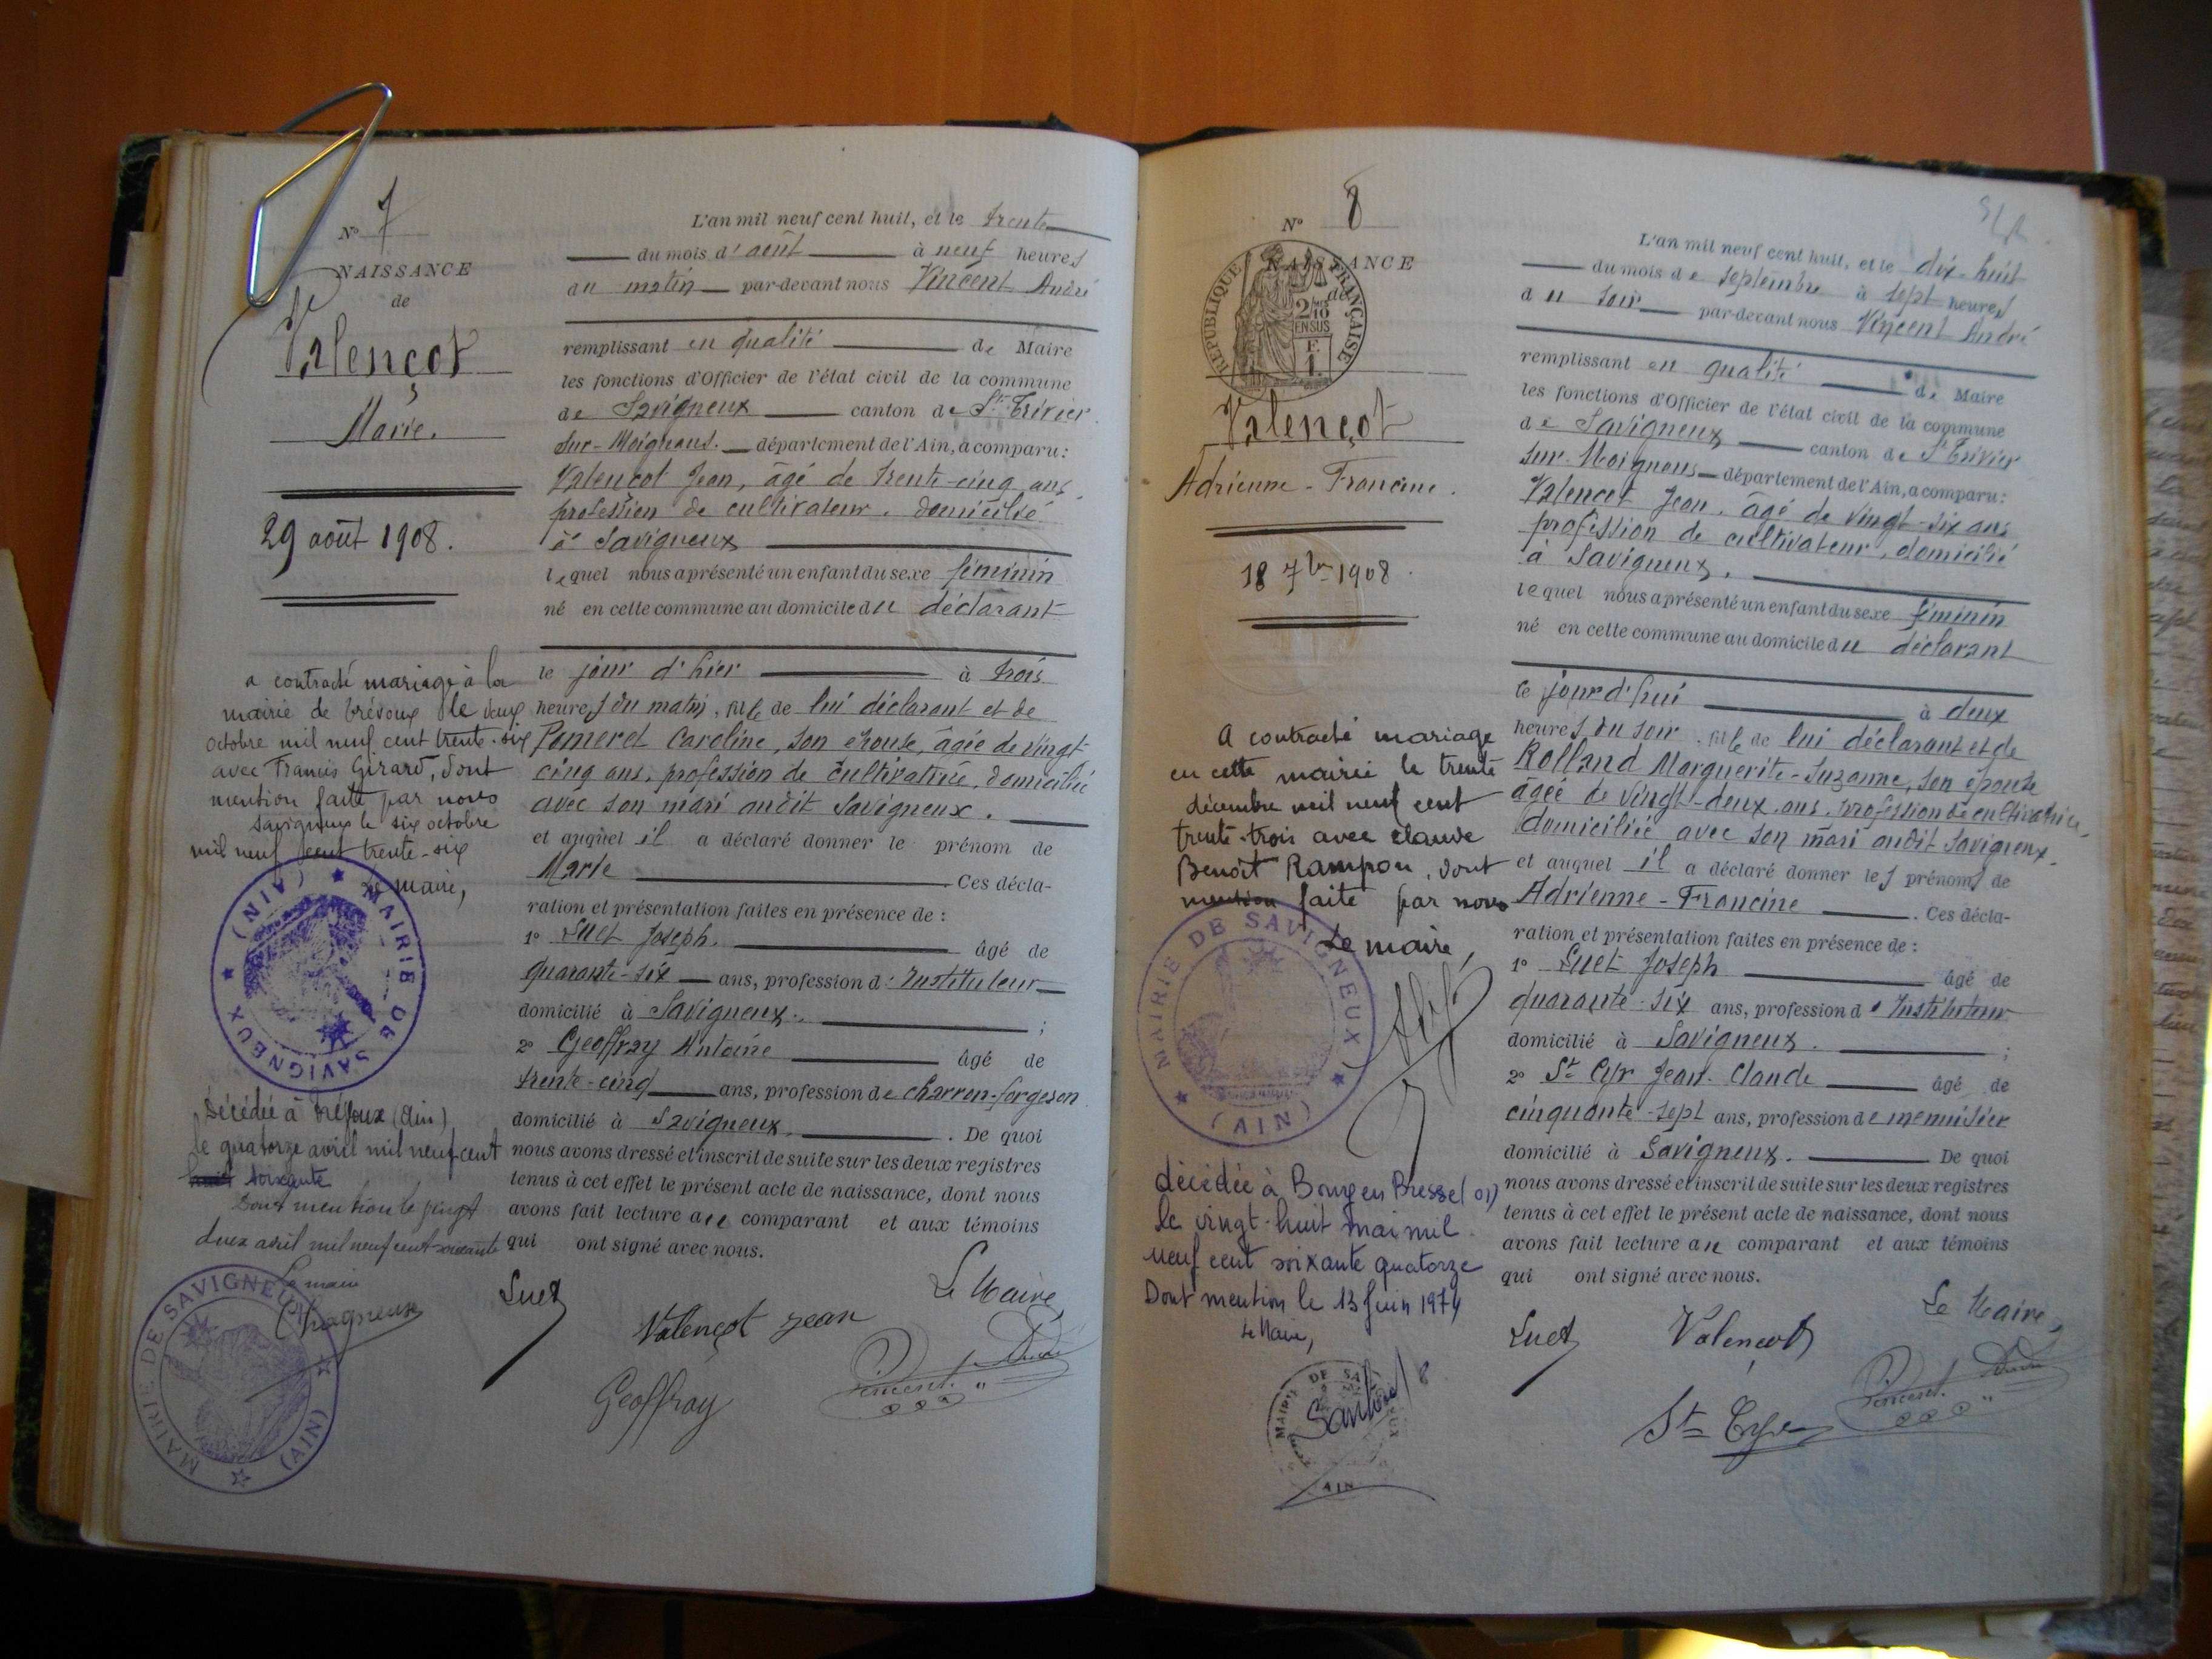 N° 7
NAISSANCE
de
Valençot
Marie.
29 août 1908.
a contracté mariage à la
mairie de Trévoux le deux
octobre mil neuf cent trente-six
avec Francis Girard, dont
mention faite par nous
Savigneux le six octobre
mil neuf cent trente-six
Le maire,
MAIRIE DE SAVIGNEUX (AIN)
Décédée à Trévoux (Ain)
le quatorze avril mil neuf cent
soixante
Dont mention le vingt
deux avril mil neuf cent soixante
Le maire
Chagneux
MAIRIE DE SAVIGNEUX (AIN)
L'an mil neuf cent huit, et le trente
du mois d'août à neuf heures
du matin par-devant nous Vincent André
remplissant en qualité de Maire
les fonctions d'Officier de l'état civil de la commune
de Savigneux canton de St Trivier
sur-Moignans. département de l'Ain, a comparu:
Valençot Jean, âgé de trente-cinq ans,
profession de cultivateur, domicilié
à Savigneux
lequel nous a présenté un enfant du sexe féminin
né en cette commune au domicile du déclarant
le jour d'hier à trois
heures du matin, fille de lui déclarant et de
Pomeret Caroline, son épouse, âgée de vingt-
cinq ans, profession de cultivatrice, domiciliée
avec son mari audit Savigneux.
et auquel il a déclaré donner le prénom de
Marie Ces décla-
ration et présentation faites en présence de :
1° Suet Joseph. âgé de
quarante-six ans, profession d'Instituteur
domicilié à Savigneux. ;
2° Geoffray Antoine âgé de
trente-cinq ans, profession de charron-forgeron
domicilié à Savigneux. . De quoi
nous avons dressé et inscrit de suite sur les deux registres
tenus à cet effet le présent acte de naissance, dont nous
avons fait lecture au comparant et aux témoins
qui ont signé avec nous.
Le Maire,
Suet
Valençot Jean
Geoffray
Vincent André
N° 8
NAISSANCE
de
REPUBLIQUE FRANÇAISE
2/10 EN SUS
F. 1.
Valençot
Adrienne-Francine.
18 7bre 1908.
A contracté mariage
en cette mairie le trente
décembre mil neuf cent
trente-trois avec Claude
Benoît Rampon, dont
mention faite par nous
Le maire,
MAIRIE DE SAVIGNEUX (AIN)
décédée à Bourg en Bresse (01)
le vingt-huit mai mil
neuf cent soixante quatorze
Dont mention le 13 Juin 1974
Le Maire,
L'an mil neuf cent huit, et le dix-huit
du mois de septembre à sept heures
du soir par-devant nous Vincent André
remplissant en qualité de Maire
les fonctions d'Officier de l'état civil de la commune
de Savigneux canton de St Trivier
sur-Moignans département de l'Ain, a comparu:
Valençot Jean, âgé de vingt-six ans
profession de cultivateur, domicilié
à Savigneux.
lequel nous a présenté un enfant du sexe féminin
né en cette commune au domicile du déclarant
le jourd'hui à deux
heures du soir, fille de lui déclarant et de
Rolland Marguerite-Suzanne, son épouse
âgée de vingt-deux ans, profession de cultivatrice,
domiciliée avec son mari audit Savigneux.
et auquel il a déclaré donner les prénoms de
Adrienne-Francine . Ces décla-
ration et présentation faites en présence de :
1° Suet Joseph âgé de
quarante-six ans, profession d'Instituteur
domicilié à Savigneux. ;
2° St Cyr Jean-Claude âgé de
cinquante-sept ans, profession de menuisier
domicilié à Savigneux. De quoi
nous avons dressé et inscrit de suite sur les deux registres
tenus à cet effet le présent acte de naissance, dont nous
avons fait lecture au comparant et aux témoins
qui ont signé avec nous.
Le Maire,
Suet
Valençot
St Cyr
Vincent André